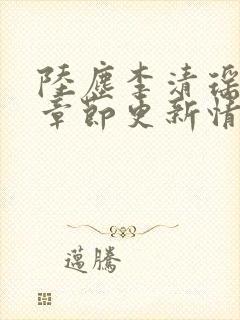 陸塵李清瑤
章節更新情
邁騰